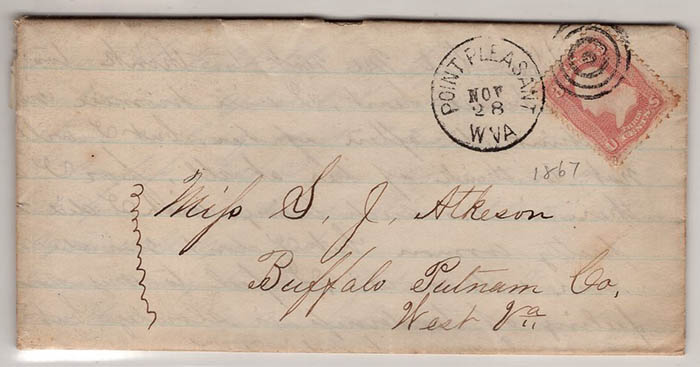 POINT PLEASANT
NOV
28
W VA
1867
Miſs S. J. Atkeson
Buffalo Putnam Co,
West Va